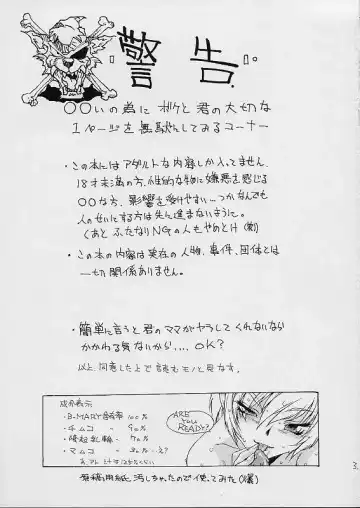 警告
○○いの為にボケと君の大切な
1ページを無駄にしてみるコーナー
・この本にはアダルトな内容しか入ってません。
18才未満の方、性的な物に嫌悪を感じる
○○な方、影響を受けやすい…つかなんでも
人のせいにする方は先に進まないように。
(あと ふたなりNGの人もやめとけ
・この本の内容は実在の人物、事件、団体とは
一切関係ありません。
・簡単に言うと君のママがヤラしてくれないなら
かかわる気ないから.... OK?
以上同意した上で読むモノと見なす。
成分表示
・B-MARY 100%
・チムコ 90%
・勃起乳輪 70%
・マムコ 30%…え?
ARE YOU READY?
原稿用紙汚しちゃったので使ってみた(爆)
3